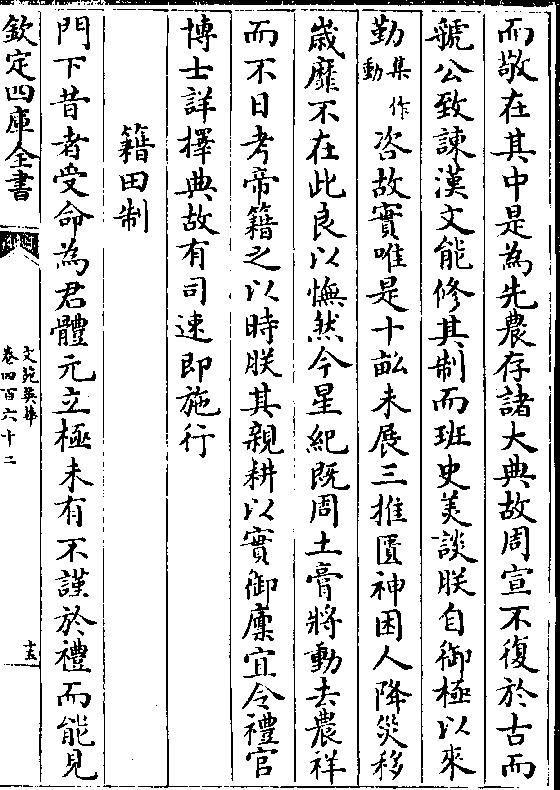 而敬在其中是為先農存諸大典故周宣不復於古而
虢公致諫漢文能修其制而班史美談朕自御極以來
勤集作動咨故實唯是十畝未展三推匱神困人降災移
歲靡不在此良以憮然今星紀既周土膏將動去農祥
而不日考帝籍之以時朕其親耕以實御廩宜令禮官
博士詳擇典故有司速即施行
籍田制
門下昔者受命為君體元立極未有不謹於禮而能見
欽定四庫全書
文苑英華
卷四百六十二
十五